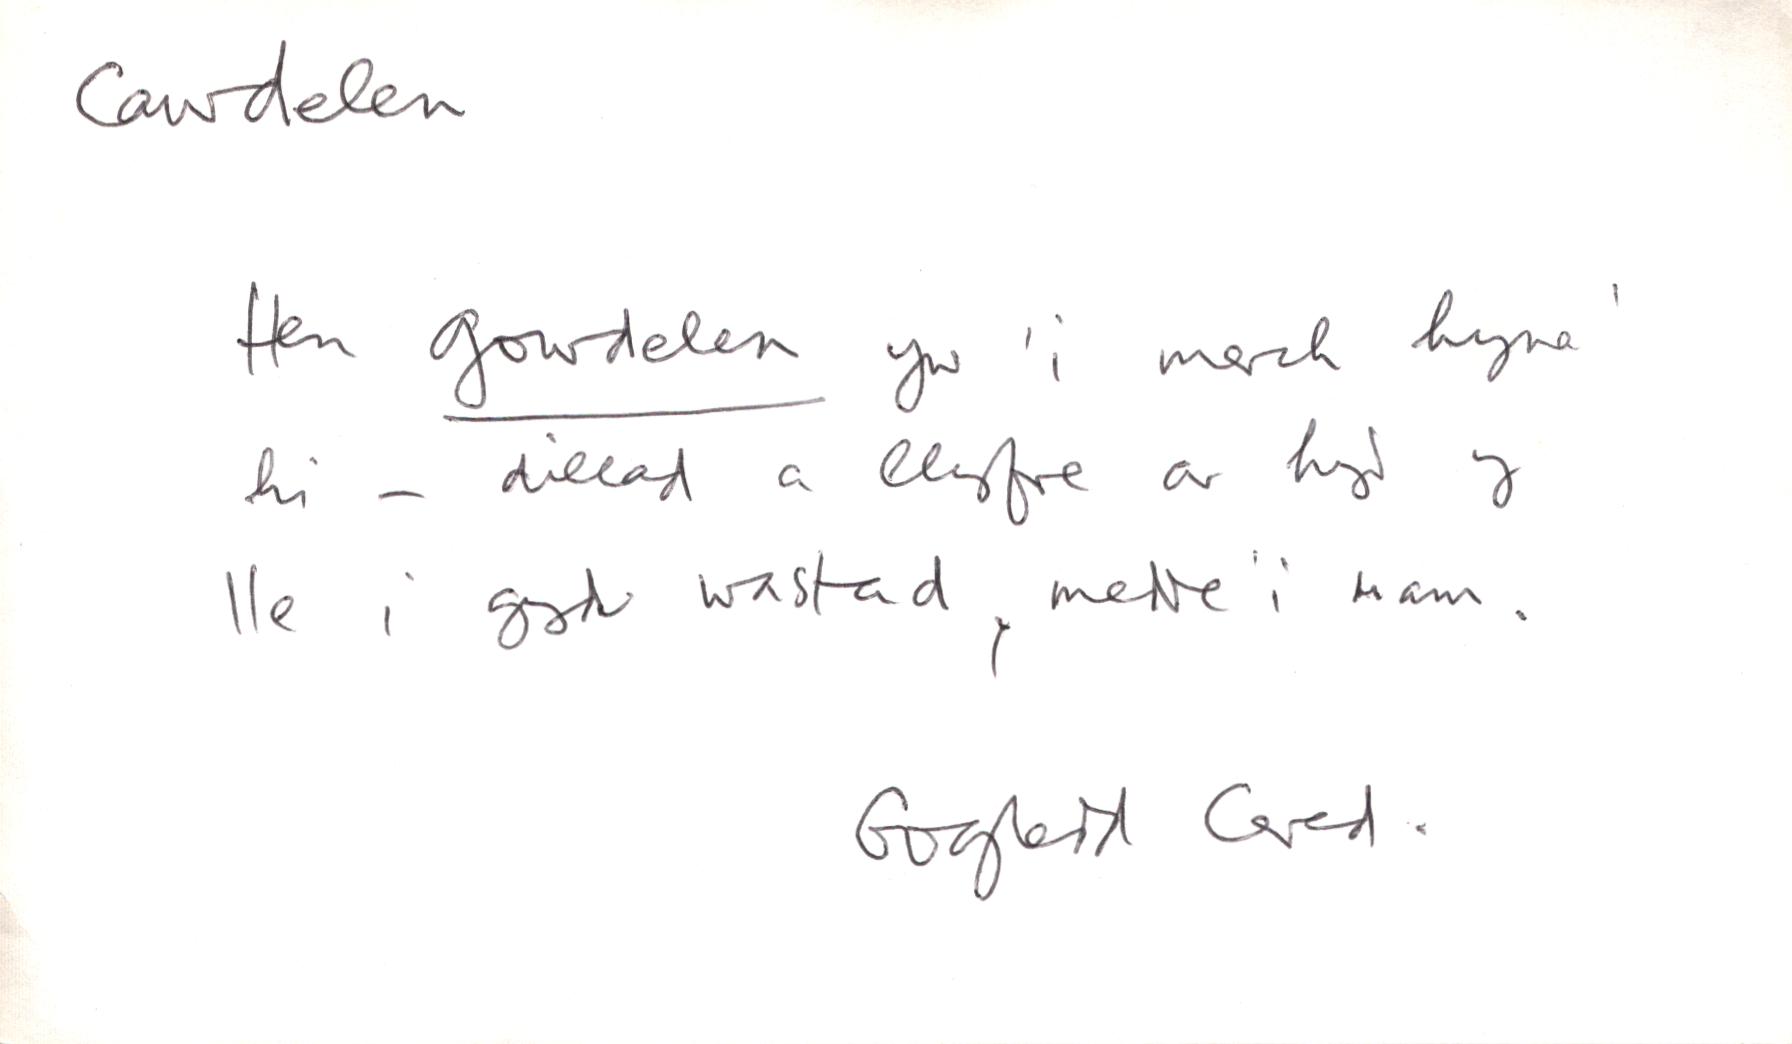 Cawdelen
Hen gowdelen yw 'i merch hyna'
hi – dillad a llyfre ar hyd y
lle i gyd wastad, medde 'i mam.
Gogledd Cered.